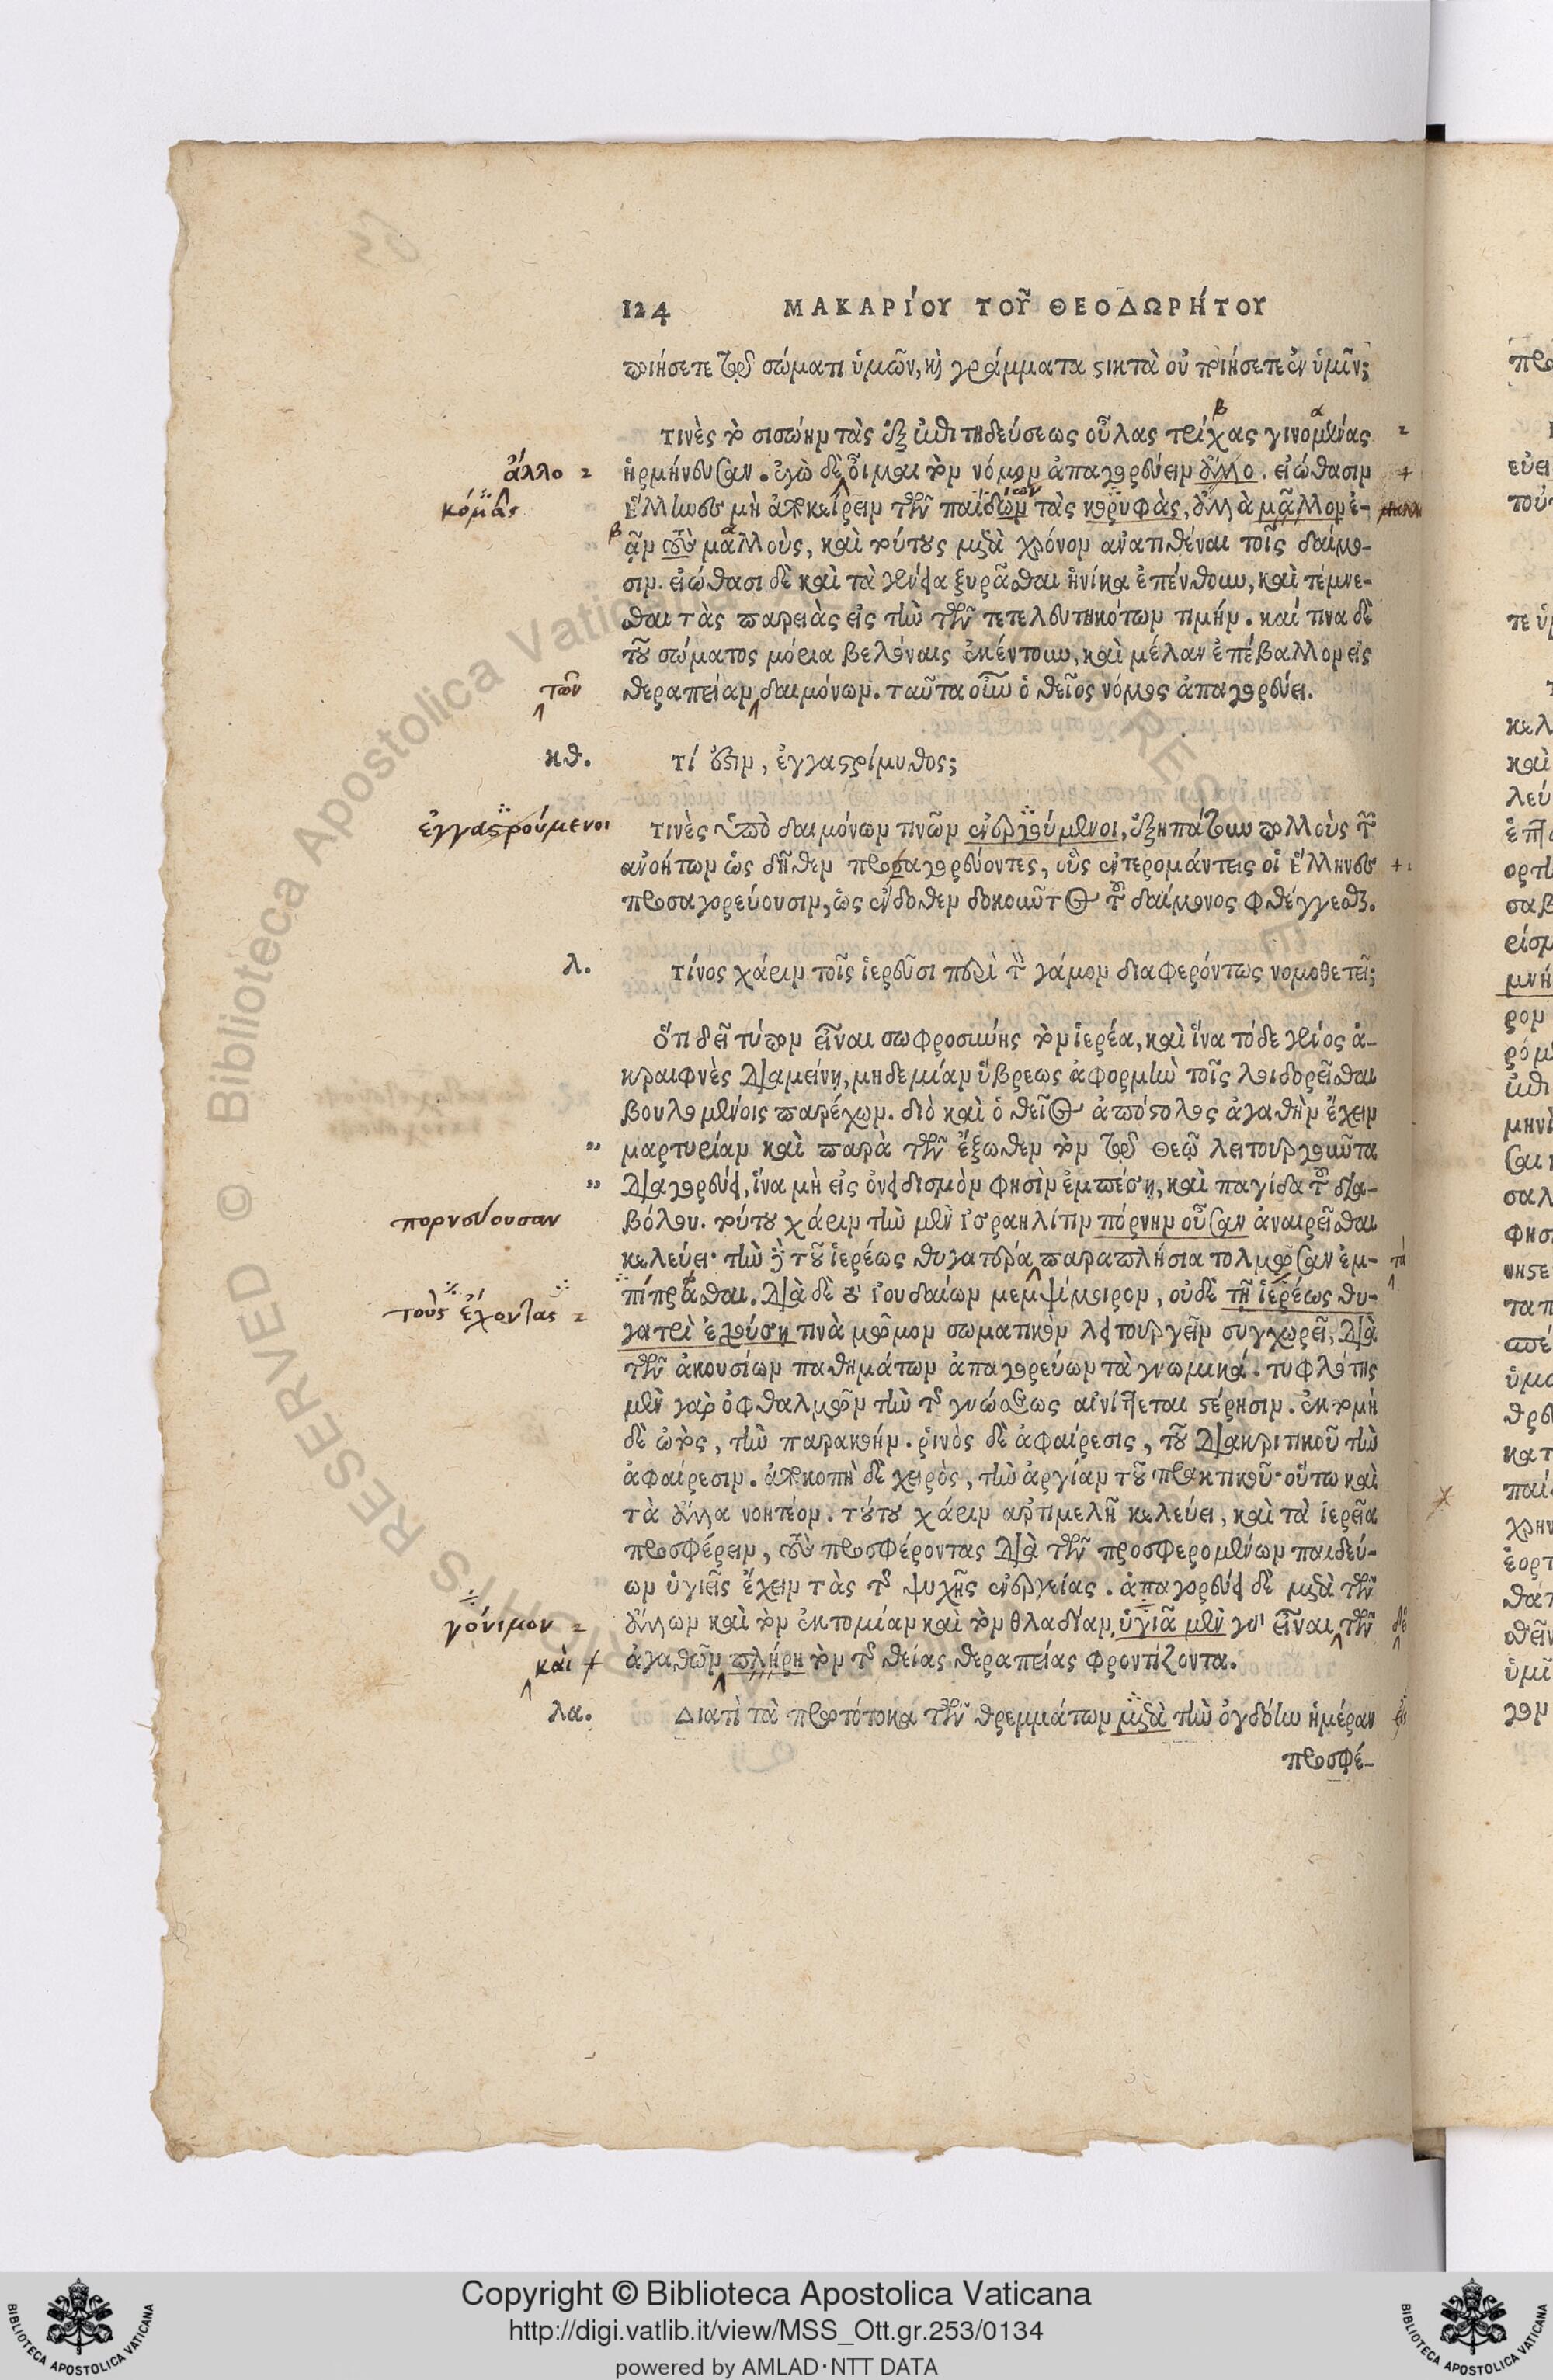 124 ΜΑΚΑΡΊΟΥ ΤΟΥ͂ ΘΕΟΔΩΡΉΤΟΥ
ποιήσετε ἐν τῷ σώματι ὑμῶν, καὶ γράμματα στικτὰ οὐ ποιήσετε ἐν ὑμῖν;
τινὲς τὸ σισώην τὰς ἐξ ἐπιτηδεύσεως οὔλας τρίχας γινομένας
ἄλλο
ἡρμήνευσαν. ἐγὼ δὲ οἶμαι τὸν νόμον ἀπαγορεύειν ἄλλο. εἰώθασιν
κόμας
Ἕλληνες μὴ ἀποκείρειν τῶν παίδων τὰς κορυφὰς, ἀλλὰ μᾶλλον ἐ-
ᾷν τοὺς μαλλοὺς, καὶ τούτους μετὰ χρόνον ἀνατιθέναι τοῖς δαίμο-
σιν. εἰώθασι δὲ καὶ τὰ γένεια ξυρᾶσθαι ἡνίκα ἐπένθουν, καὶ τέμνε-
σθαι τὰς παρειὰς εἰς τὴν τῶν τετελευτηκότων τιμήν. καί τινα δὲ
τοῦ σώματος μόρια βελόναις ἐκέντουν, καὶ μέλαν ἐπέβαλλον εἰς
τῶν
θεραπείαν δαιμόνων. ταῦτα οὖν ὁ θεῖος νόμος ἀπαγορεύει.
κθ. τί ἐστιν, ἐγγαστρίμυθος;
ἐγγαστρούμενοι
τινὲς ὑπὸ δαιμόνων τινῶν ἐνεργούμενοι, ἐξηπάτων πολλοὺς τῶν
ἀνοήτων ὡς δῆθεν προσαγορεύοντες, οὓς ἐντερομάντεις οἱ Ἕλληνες
προσαγορεύουσιν, ὡς ἔνδοθεν δοκοῦντος τοῦ δαίμονος φθέγγεσθαι.
λ. τίνος χάριν τοῖς ἱερεῦσι περὶ τὸν γάμον διαφερόντως νομοθετεῖ;
ὅτι δεῖ τύπον εἶναι σωφροσύνης τὸν ἱερέα, καὶ ἵνα τόδε γένος ἀ-
κραιφνὲς διαμείνῃ, μηδεμίαν ὕβρεως ἀφορμὴν τοῖς λοιδορεῖσθαι
βουλομένοις παρέχων. διὸ καὶ ὁ θεῖος ἀπόστολος ἀγαθὴν ἔχειν
" μαρτυρίαν καὶ παρὰ τῶν ἔξωθεν τὸν τῷ Θεῷ λειτουργοῦντα
" διαγορεύει, ἵνα μὴ εἰς ὀνειδισμὸν φησὶν ἐμπέσῃ, καὶ παγίδα τοῦ δια-
πορνεύουσαν
βόλου. τούτου χάριν τὴν μὲν ἰσραηλίτιν πόρνην οὖσαν ἀναιρεῖσθαι
κελεύει· τὴν δὲ τοῦ ἱερέως θυγατέρα παραπλήσια τολμῶσαν ἐμ- τὰ
πίπρασθαι. διὰ δὲ τὸ Ἰουδαίων μεμψίμοιρον, οὐδὲ τῇ ἱερέως θυ-
τοὺς ἔχοντας
γατρὶ ἐχούσῃ τινὰ μῶμον σωματικὸν λειτουργεῖν συγχωρεῖ, διὰ
τῶν ἀκουσίων παθημάτων ἀπαγορεύων τὰ γνωμικά. τυφλότης
μὲν γὰρ ὀφθαλμῶν τὴν τῆς γνώσεως αἰνίττεται στέρησιν. ἐκτομὴ
δὲ ὠτὸς, τὴν παρακοήν. ῥινὸς δὲ ἀφαίρεσις, τοῦ διακριτικοῦ τὴν
ἀφαίρεσιν. ἀποκοπὴ δὲ χειρὸς, τὴν ἀργίαν τοῦ πρακτικοῦ· οὕτω καὶ
τὰ ἄλλα νοητέον. τούτου χάριν ἀρτιμελῆ κελεύει, καὶ τὰ ἱερεῖα
προσφέρειν, τοὺς προσφέροντας διὰ τῶν προσφερομένων παιδεύ-
ων ὑγιεῖς ἔχειν τὰς τῆς ψυχῆς ἐνεργείας. ἀπαγορεύει δὲ μετὰ τῶν
γόνιμον
ἄλλων καὶ τὸν ἐκτομίαν καὶ τὸν θλαδίαν, ὑγιᾶ μὲν εἶναι τῶν δὲ
καὶ
ἀγαθῶν πλήρη τὸν τῆς θείας θεραπείας φροντίζοντα.
λα. Διατὶ τὰ πρωτότοκα τῶν θρεμμάτων μετὰ τὴν ὀγδόην ἡμέραν
προσφέ-
Copyright © Biblioteca Apostolica Vaticana
http://digi.vatlib.it/view/MSS_Ott.gr.253/0134
powered by AMLAD·NTT DATA